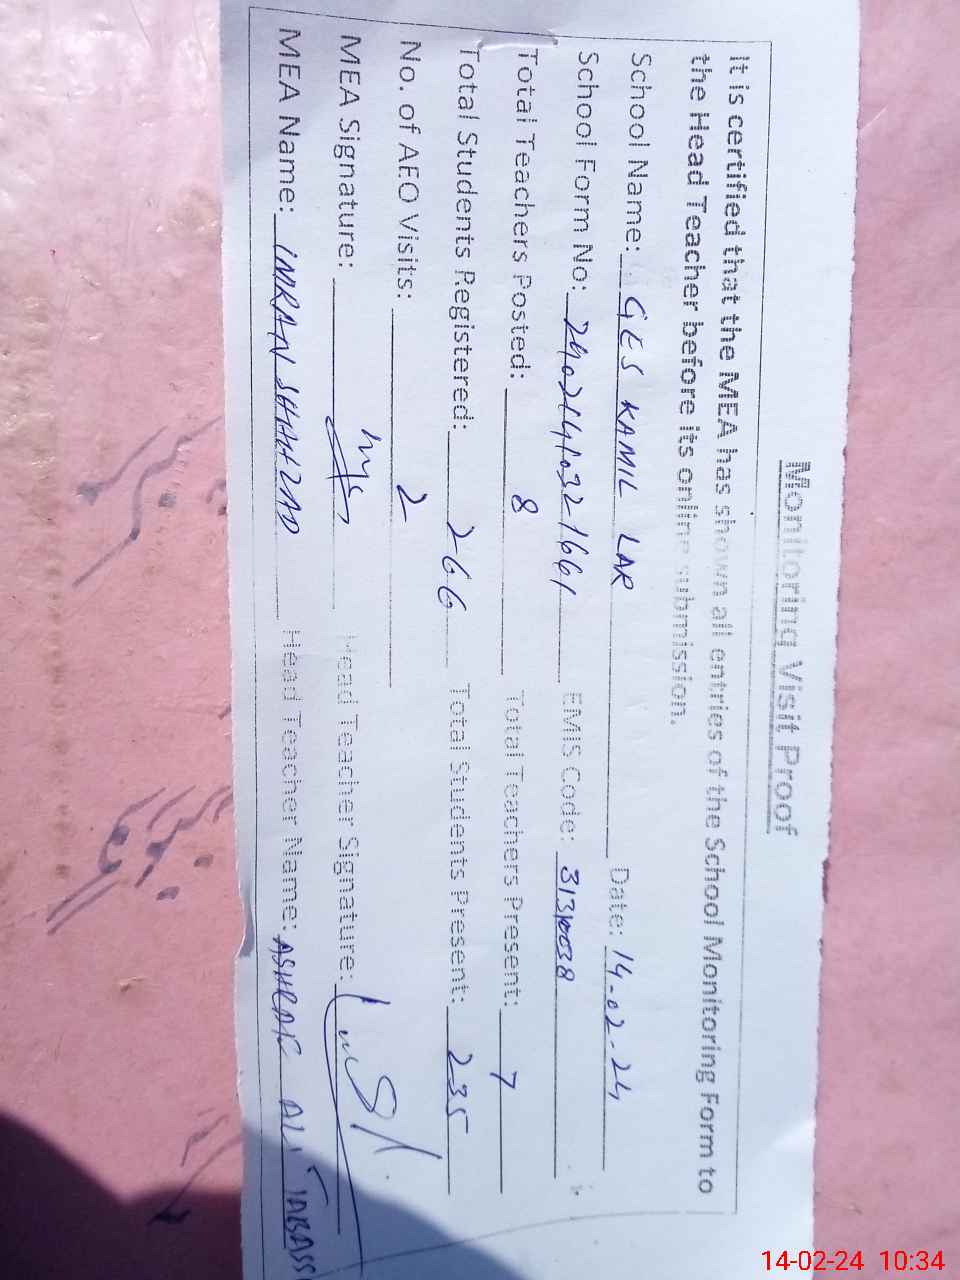 Monitoring Visit Proof
It is certified that the MEA has shown all entries of the School Monitoring Form to
the Head Teacher before its online submission.
School Name: GES KAMIL LAR Date: 14-02-24
School Form No: 24021410321661 EMIS Code: 31310038
Total Teachers Posted: 8 Total Teachers Present: 7
Total Students Registered: 266 Total Students Present: 235
No. of AEO Visits: 2
MEA Signature: Head Teacher Signature:
MEA Name: IMRAN SHAHZAD Head Teacher Name: ASHRAF ALI TABASS
14-02-24 10:34